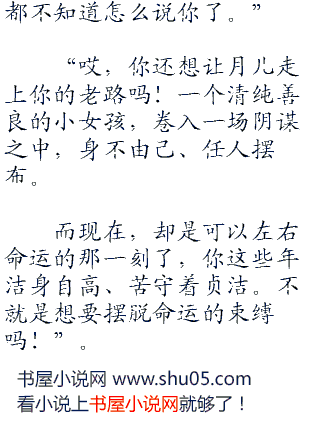 都不知道怎么说你了。”
“哎，你还想让月儿走
上你的老路吗！一个清纯善
良的小女孩，卷入一场阴谋
之中，身不由己、任人摆
布。
而现在，却是可以左右
命运的那一刻了，你这些年
洁身自高、苦守着贞洁。不
就是想要摆脱命运的束缚
吗！”。
书屋小说网 www.shu05.com
看小说上书屋小说网就够了！